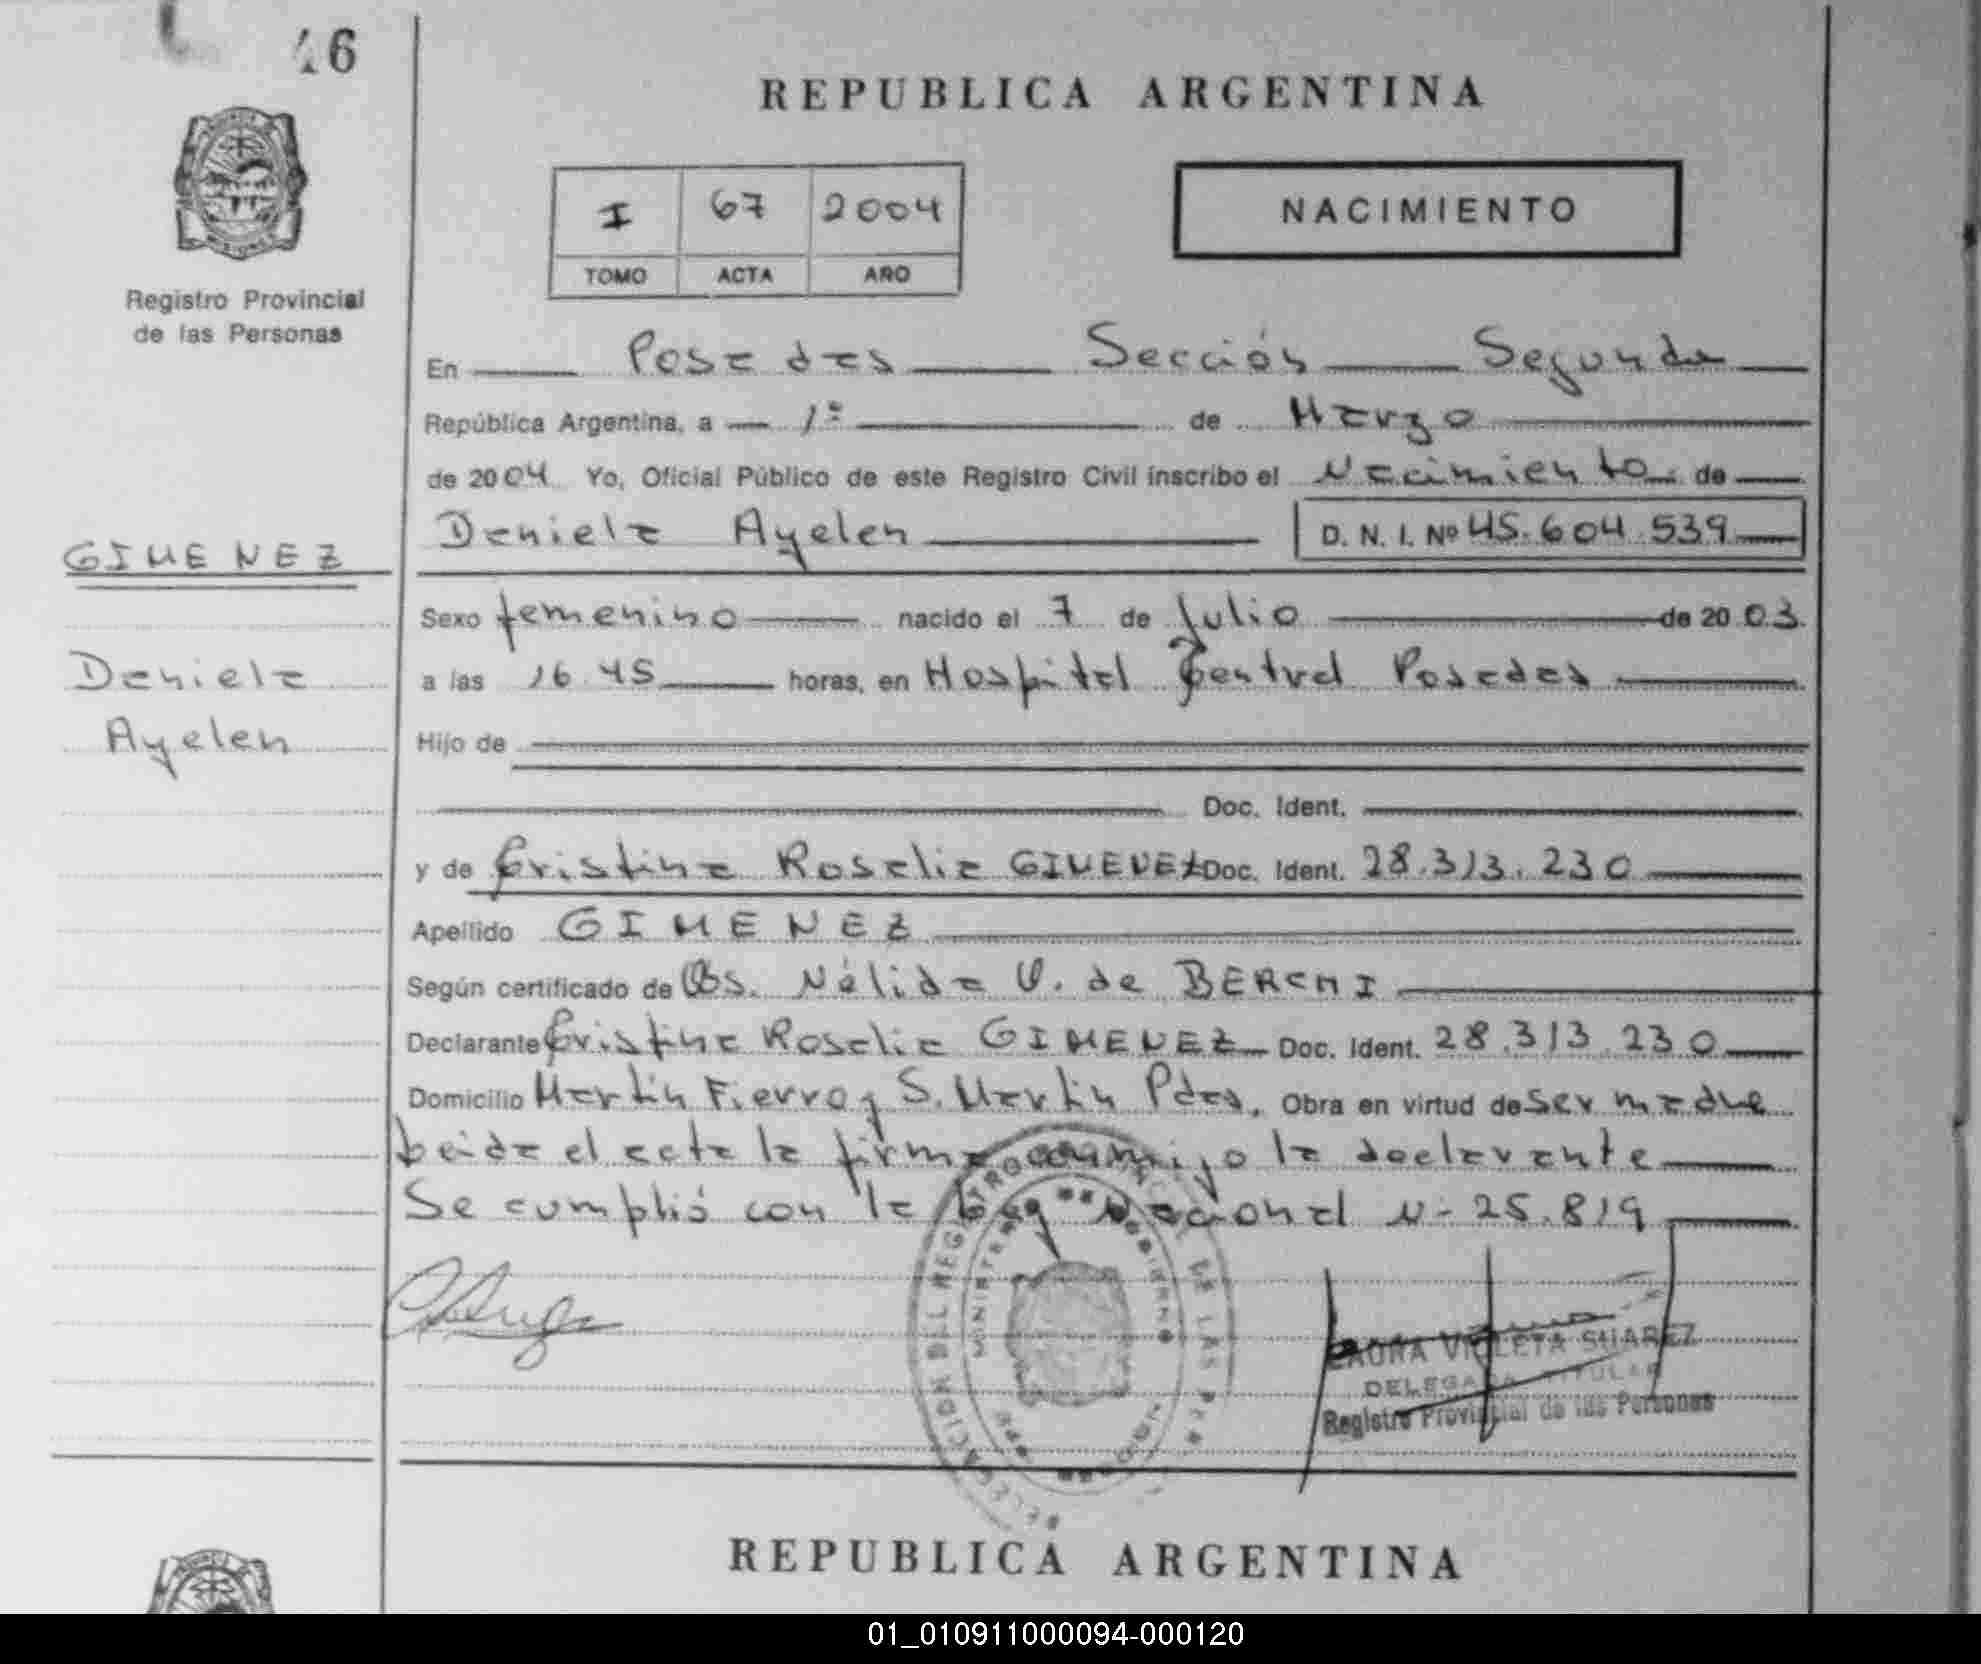 46
REPUBLICA ARGENTINA
I 67 2004
TOMO ACTA AÑO
NACIMIENTO
MISIONES
Registro Provincial
de las Personas
En Posadas Sección Segunda
República Argentina, a 1º de Marzo
de 2004 Yo, Oficial Público de este Registro Civil inscribo el Nacimiento de
Daniela Ayelen D. N. I. Nº 45.604.539
GIMENEZ
Sexo femenino nacido el 7 de Julio de 2003
Daniela
Ayelen
a las 16.45 horas, en Hospital Central Posadas
Hijo de
Doc. Ident.
y de Cristina Rosalia GIMENEZ Doc. Ident. 28.313.230
Apellido GIMENEZ
Según certificado de Obs. Nélida V. de
Declarante Cristina Rosalia GIMENEZ Doc. Ident. 28.313.230
Domicilio Martín Fierro y S. Martín Pdas. Obra en virtud de ser madre
Leida el acta la firma conmigo la declarante
Se cumplió con la Ley Nacional Nº 25.819
DELEGACION DEL REGISTRO PROVINCIAL DE LAS PER
MINISTERIO DE GOBIERNO
LAURA VIOLETA SUAREZ
DELEGADA TITULAR
Registro Provincial de las Personas
REPUBLICA ARGENTINA
01_010911000094-000120